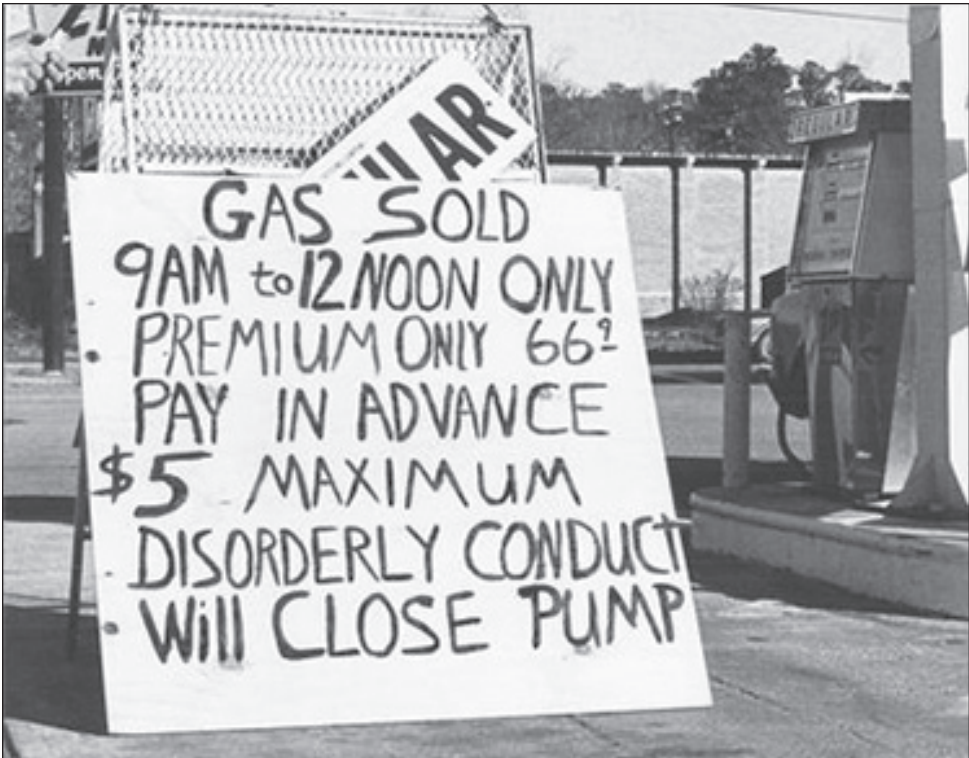 pen
ULAR
GAS SOLD
9AM to 12 NOON ONLY
PREMIUM ONLY 66⁹
PAY IN ADVANCE
$5 MAXIMUM
DISORDERLY CONDUCT
Will CLOSE PUMP
REGULAR